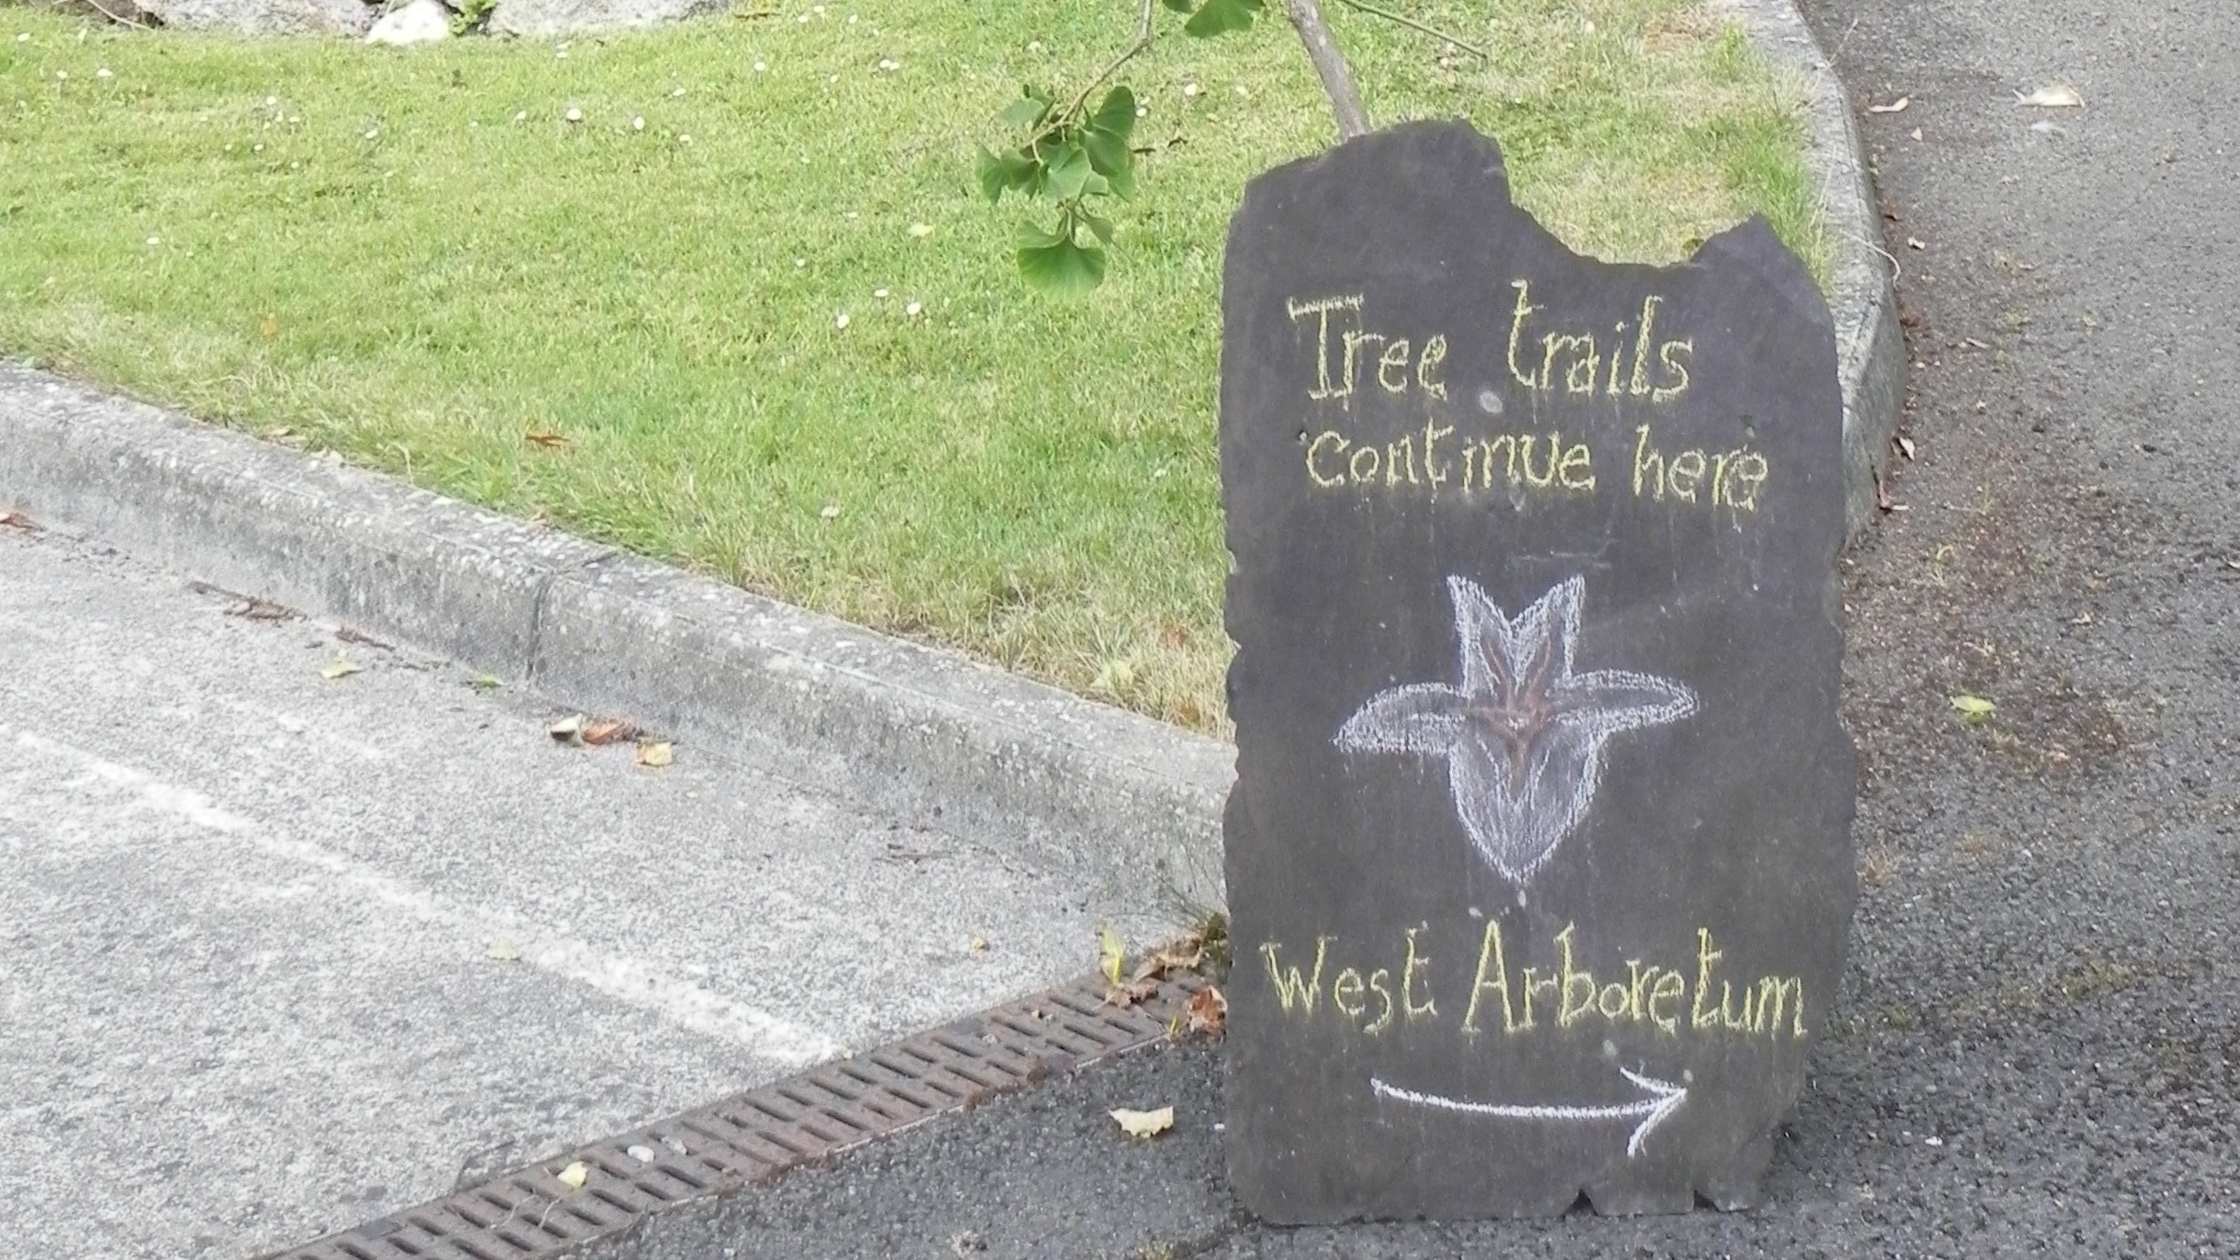 Tree trails
continue here
West Arboretum